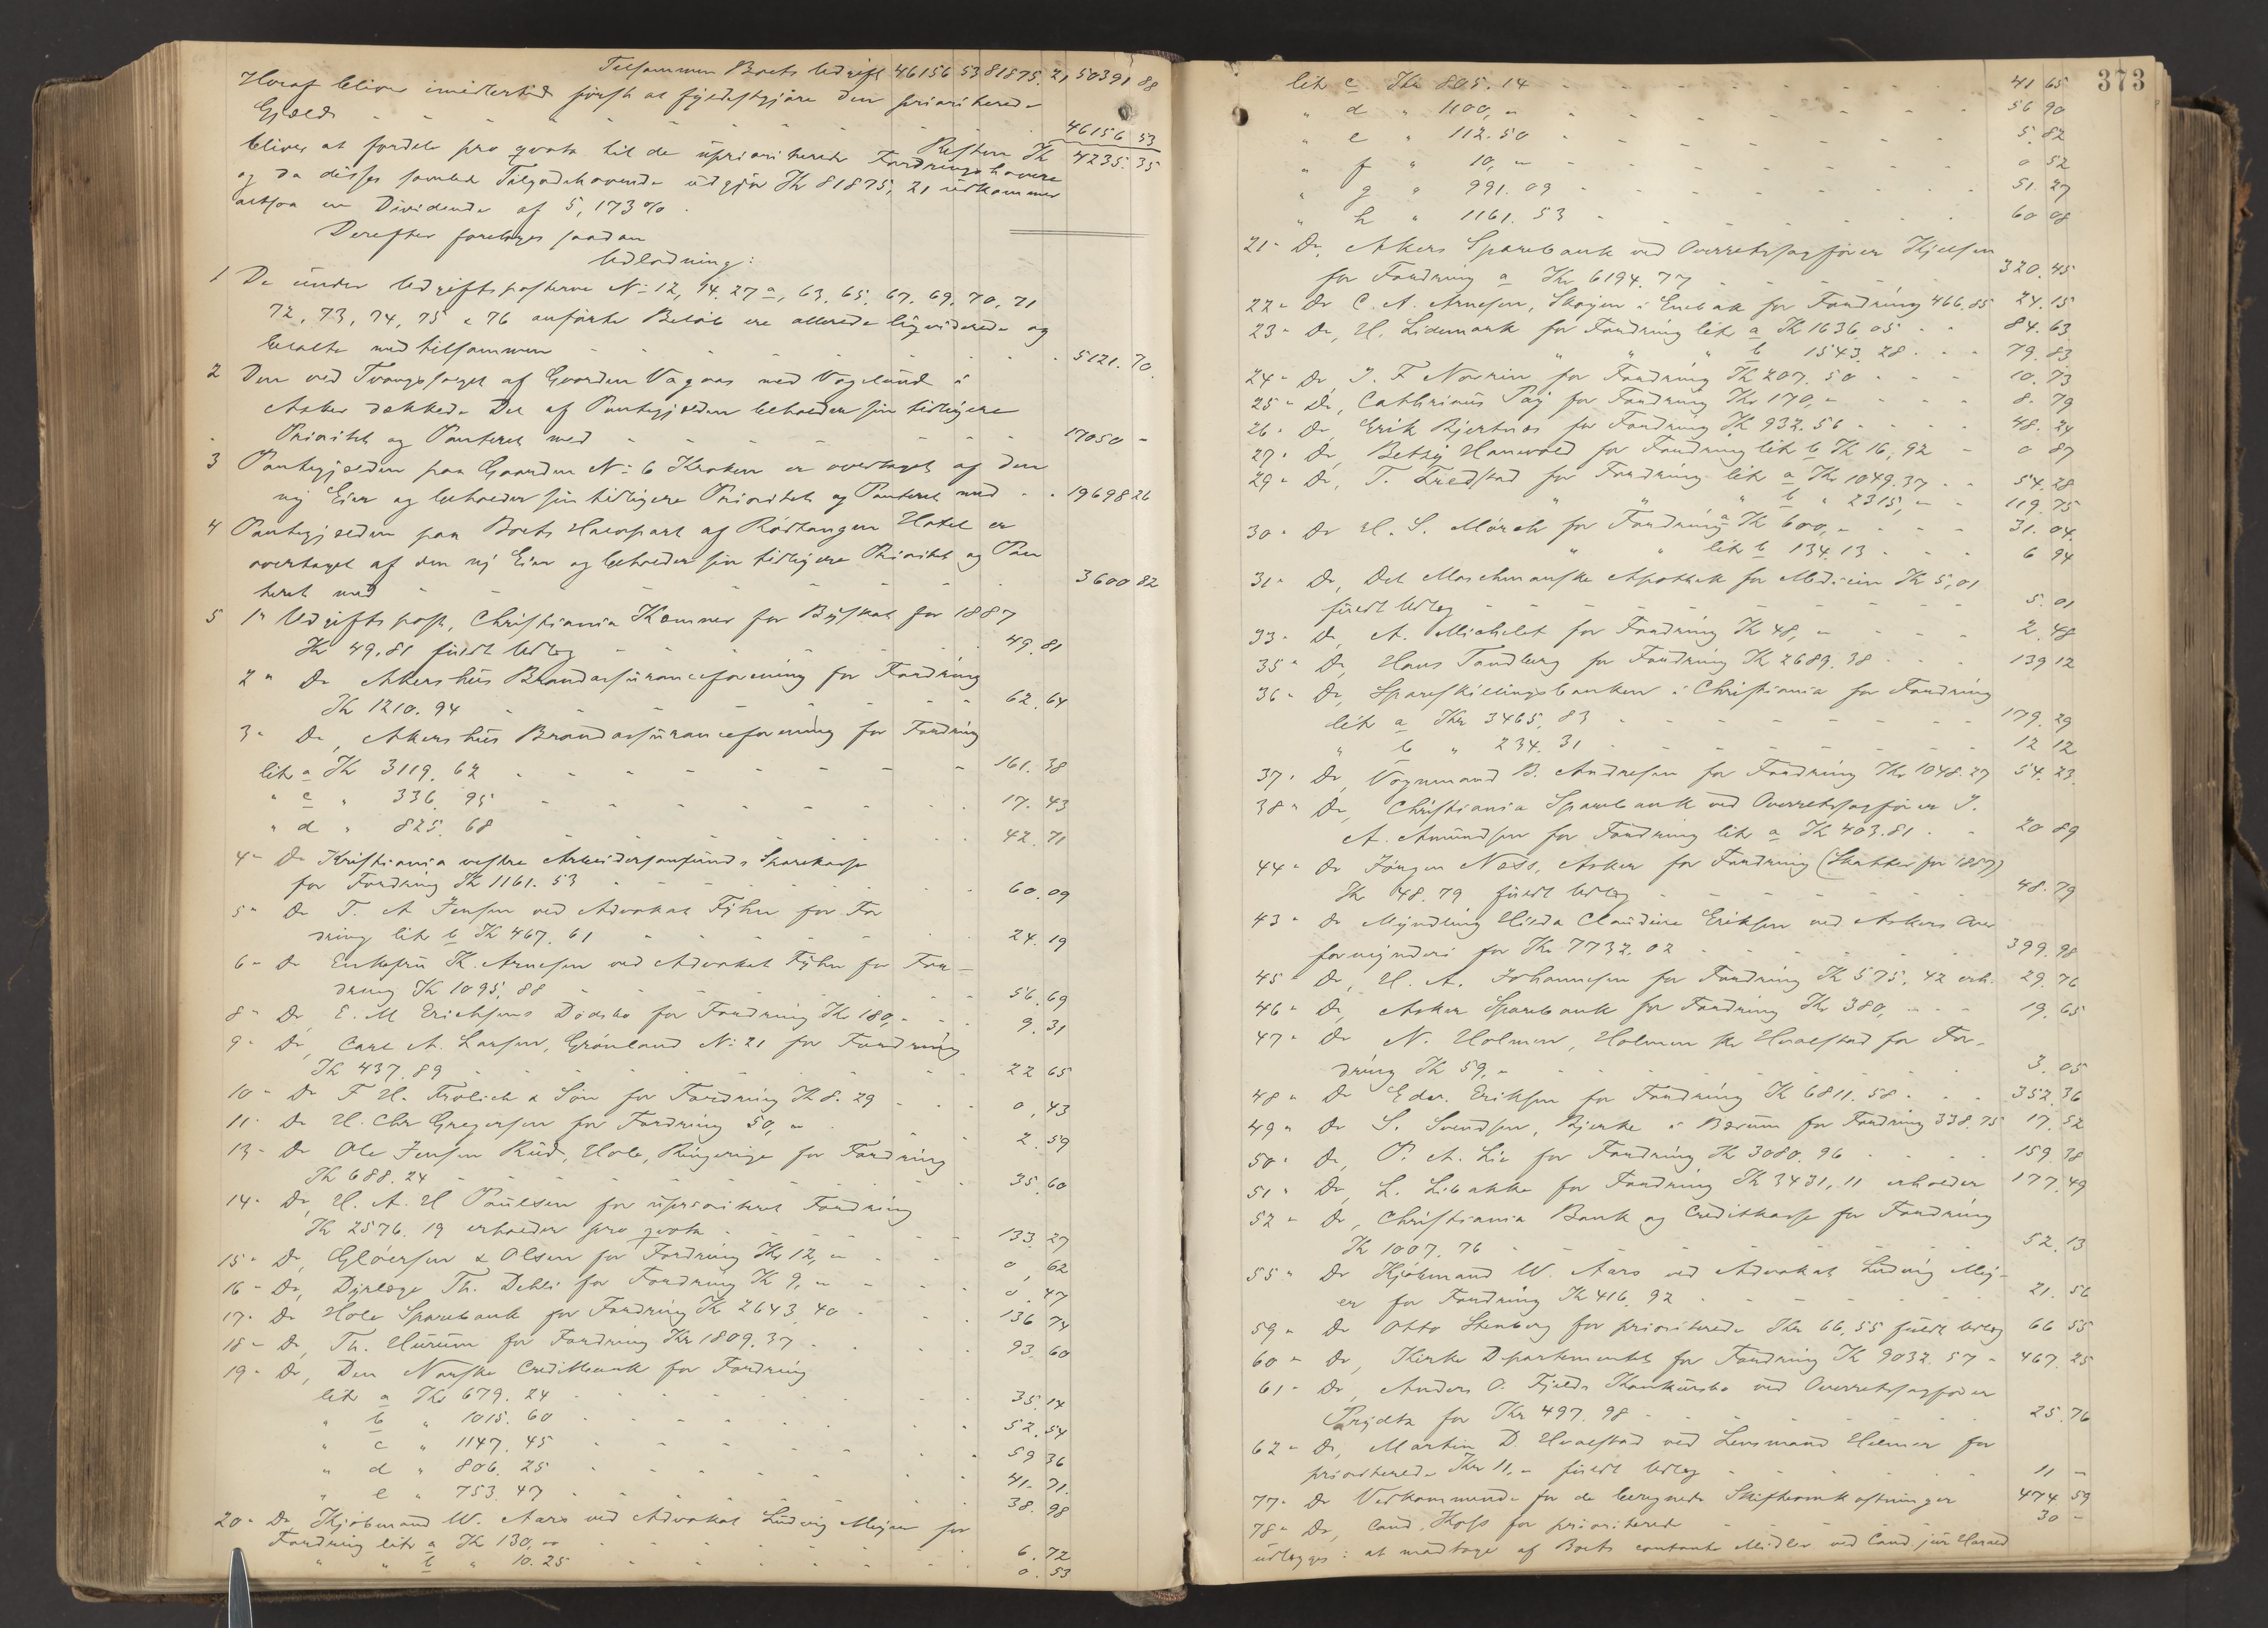 Tilsammen Boets Udgift 46156 53 81875. 21 50391 88
Heraf bliver imidlertid først at fyldestgjøre den prioriterede
Gjæld - - - 46156 53
Resten Kr 4235. 35
bliver at fordele pro qvota til de uprioriterede Fordringshavere
og da disses samlede Tilgodehavende udgjør Kr 81875, 21 udkommer
altsaa en Dividende af 5,173 %.
Derefter foretoges saadan
Udlodning:
1 De under Udgiftsposterne No 12, 14. 27 a, 63. 65. 67. 69. 70. 71
72, 73, 74, 75 & 76 anførte Beløb ere allerede liqviderede og
betalte med tilsammen - - - 5121. 70.
2 Den ved Tvangssalget af Gaarden Vagaas med Vøgelund i
Asker dækkede Del af Pantegjælden beholder sin tidligere
Prioritet og Panteret med - - - 17050 -
3 Pantegjælden paa Gaarden No 6 Kroken er overtaget af den
ny Eier og beholder sin tidligere Prioritet og Panteret med - - 19698 26
4 Pantegjælden paa Boets Halvpart af Rødtangen Hotel er
overtaget af den ny Eier og beholder sin tidligere Prioritet og Pan
teret med - - - 3600 82
5 1" Udgiftspost, Christiania Kæmner for Byskat for 1887
Kr 49. 81 fuldt Udlæg - - - 49. 81
2 " Do Akershus Brandassuranceforening for Fordring
Kr 1210. 94 - - - 62. 64
3 " Do, Akershus Brandassuranceforening for Fordring
litr a Kr 3119. 62 - - - 161. 38
" c " 336. 95 - - - 17. 43
" d " 825. 68 - - - 42. 71
4 " Do Kristiania vestre Arbeidersamfunds Sparekasse
for Fordring Kr 1161. 53 - - - 60. 09
5 " Do T. A Jensen ved Advokat Fyhn for For
dring litr b Kr 467. 61 - - - 24. 19
6 " Do Enkefru K. Arnesen ved Advokat Fyhn for For-
dring Kr 1095, 88 - - - 56. 69
8 " Do, E. M Erichsens Dødsbo for Fordring Kr 180, - - - 9. 31
9 " Do, Carl A. Larsen, Grønland No 21 for Fordring
Kr 437. 89 - - - 22 65
10 " Do F H. Frølich & Søn for Fordring Kr 8. 29 - - - 0, 43
11 " Do H. Chr Gregersen for Fordring 50, " - - - 2. 59
13 " Do Ole Jensen Rud, Hole, Ringerige for Fordring
Kr 688. 24 - - - 35. 60
14 " Do, H. A. H Poulsen for uprioriteret Fordring
Kr 2576. 19 erholder pro qvota - - - 133. 27
15 " Do, Gløersen & Olsen for Fordring Kr 12, " - - - 0, 62
16 " Do, Dyrlæge Th. Dehli for Fordring Kr 9, " - - - 0. 47
17 " Do Hole Sparebank for Fordring Kr 2643, 40 - - - 136 74
18 " Do, Th. Hurum for Fordring Kr 1809. 37 - - - 93. 60
19 " Do, Den Norske Creditbank for Fordring
litr a Kr 679. 24 - - - 35. 14
" b " 1015. 60 - - - 52. 54
" c " 1147. 45 - - - 59 36
" d " 806. 25 - - - 41. 71.
" e " 753. 47 - - - 38. 98
20 " Do Kjøbmand W. Aars ved Advokat Ludvig Meyer for
Fordring litr a Kr 130, " - - - 6. 72
" " b " 10. 25 - - - 0. 53
373
litr c Kr 805. 14 - - - 41 65
" d " 1100, " - - - 56 90
" e " 112. 50 - - - 5. 82
" f " 10, " - - - 0 52
" g " 991. 09 - - - 51. 27
" h " 1161. 53 - - - 60 08
21 " Do, Akers Sparebank ved Overretssagfører Hjelsen
for Fordring a Kr 6194. 77 - - - 320. 45
22 " Do C. A. Arnesen, Skøyen i Enebak for Fordring 466. 85 24. 15
23 " Do, H. Lidemark for Fordring litr a Kr 1636. 05 - - 84. 63
" " " b 1543. 28 - - - 79. 83
24 " Do, J. F Norrin for Fordring Kr 207. 50 - - - 10. 73
25 " Do, Cathrinus Paj for Fordring Kr 170, " - - - 8. 79
26 " Do, Erik Bjertnæs for Fordring Kr 932. 56 - - - 48. 24
27 " Do, Betzy Hanevold for Fordring litr b Kr 16, 92 - 0 87
29 " Do, T. Fredstad for Fordring litr a Kr 1049. 37 - - 54. 28
" " " b " 2315, " - - 119. 75
30 " Do H. S. Mørch for Fordring a Kr 600, " - - - 31. 04.
" " litr b 134. 13 - - - 6 94
31 " Do, Det Maschmanske Apothek for Medicin Kr 5, 01
fuldt Udlæg - - - 5. 01
33 " Do, A. Michelet for Fordring Kr 48, " - - - 2. 48
35 " Do, Hans Tandberg for Fordring Kr 2689. 38 - - - 139 12
36 " Do, Spareskillingsbanken i Christiania for Fordring
litr a Kr 3465. 83 - - - 179. 29
" b " 234. 31 - - - 12 12
37 " Do, Vognmand B. Andresen for Fordring Kr 1048. 27 54. 23.
38 " Do, Christiania Sparebank ved Overretssagfører J.
A. Amundsen for Fordring litr a Kr 403. 81 - - 20 89
44 " Do Jørgen Næss, Asker for Fordring (Skatter for 1887)
Kr 48. 79 fuldt Udlæg - - - 48. 79
43 " Do Myndling Hilda Claudine Eriksen ved Askers Over
formynderi for Kr 7732. 02 - - - 399. 98
45 " Do, H. A. Johannesen for Fordring Kr 575. 42 erh. 29. 76
46 " Do, Asker Sparebank for Fordring Kr 380, - - - 19. 65
47 " Do N. Holmen, Holmen pr Hvalstad for For-
dring Kr 59, " - - - 3. 05
48 " Do Edv. Eriksen for Fordring Kr 6811. 58 - - - 352. 36
49 " Do S. Svendsen, Bjerke i Bærum for Fordring 338. 75 17. 52
50 " Do, P. A. Lie for Fordring Kr 3080. 96 - - - 159. 38
51 " Do, L. Libakke for Fordring Kr 3431, 11 erholder 177. 49
52 " Do, Christiania Bank og Creditkasse for Fordring
Kr 1007. 76 - - - 52. 13
55 " Do Kjøbmand W. Aars ved Advokat Ludvig Mey-
er for Fordring Kr 416. 92 - - - 21. 56
59 " Do Otto Stenberg for prioriterede Kr 66, 55 fuldt Udlæg 66 55
60 " Do, Kirke Departementet for Fordring Kr 9032. 57 - 467. 25
61 " Do, Anders O. Fjelds Konkursbo ved Overretssagfører
Prydtz for Kr 497. 98 - - - 25. 76
62 " Do, Martin D. Hvalstad ved Lensmand Hilmer for
prioriterede Kr 11, " fuldt Udlæg - - - 11 -
77 " Do Vedkommende for de beregnede Skifteomkostninger 474. 59
78 " Do, Cand. Koss for prioriterede - - - 30 -
udlægges: at modtage af Boets contante Midler ved Cand. jur Harald